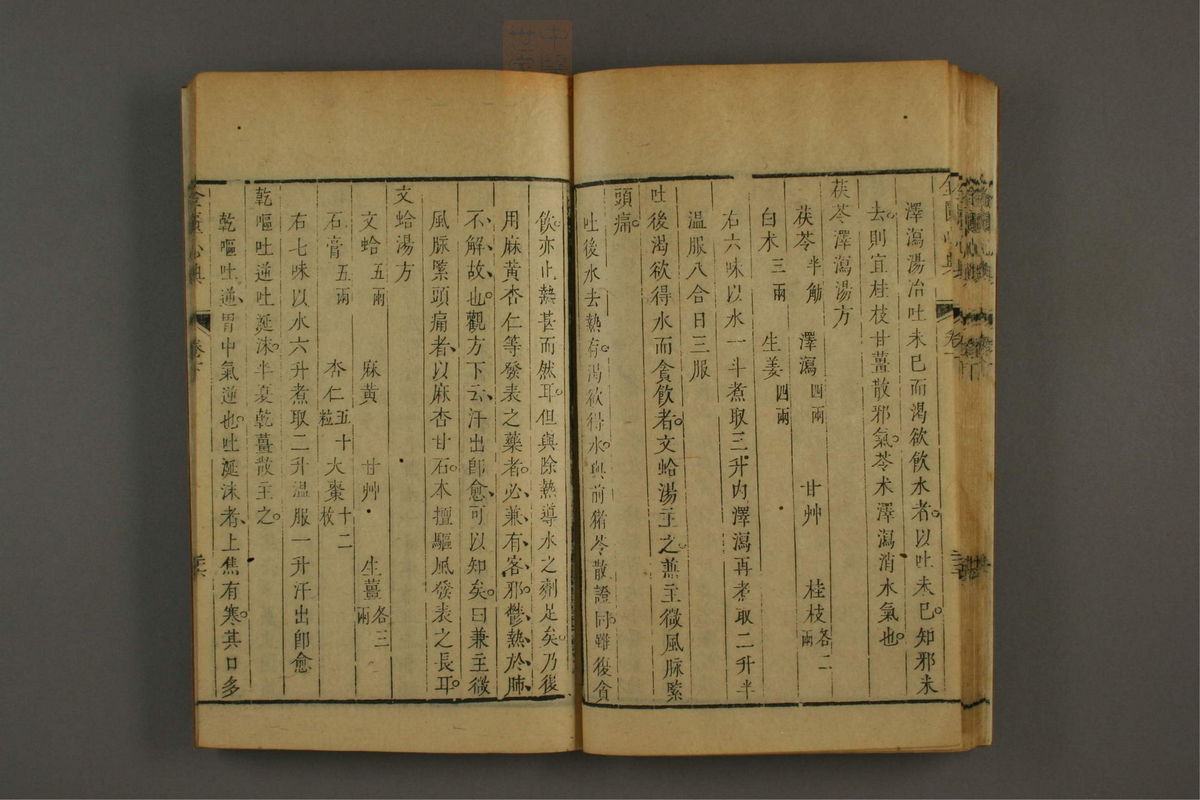 澤瀉湯治吐未已而渴欲飲水者。以吐未已。知邪未
去。則宜桂枝甘薑散邪氣。苓术澤瀉消水氣也。
茯苓澤瀉湯方
茯苓半觔 澤瀉四兩 甘艸 桂枝各二兩
白术三兩 生姜四兩
右六味以水一斗煮取三升内澤瀉再煮取二升半
温服八合日三服
吐後渴欲得水而貪飲者。文蛤湯主之。兼主微風脉緊
頭痛。
吐後水去熱存。渴欲得水。與前猪苓散證同。雖復貪
飲。亦止熱甚而然耳。但與除熱導水之劑足矣。乃復
用麻黃杏仁等發表之藥者。必兼有客邪鬱熱於肺
不解故也。觀方下云。汗出卽愈可以知矣。曰兼主微
風脉緊頭痛者。以麻杏甘石。本擅驅風發表之長耳。
文蛤湯方
文蛤五兩 麻黃 甘艸 生薑各三兩
石膏五兩 杏仁五十粒 大棗十二枚
右七味以水六升煮取二升温服一升汗出卽愈
乾嘔吐逆吐涎沫。半夏乾薑散主之。
乾嘔吐逆。胃中氣逆也。吐涎沫者。上焦有寒。其口多
金匱心典
卷下